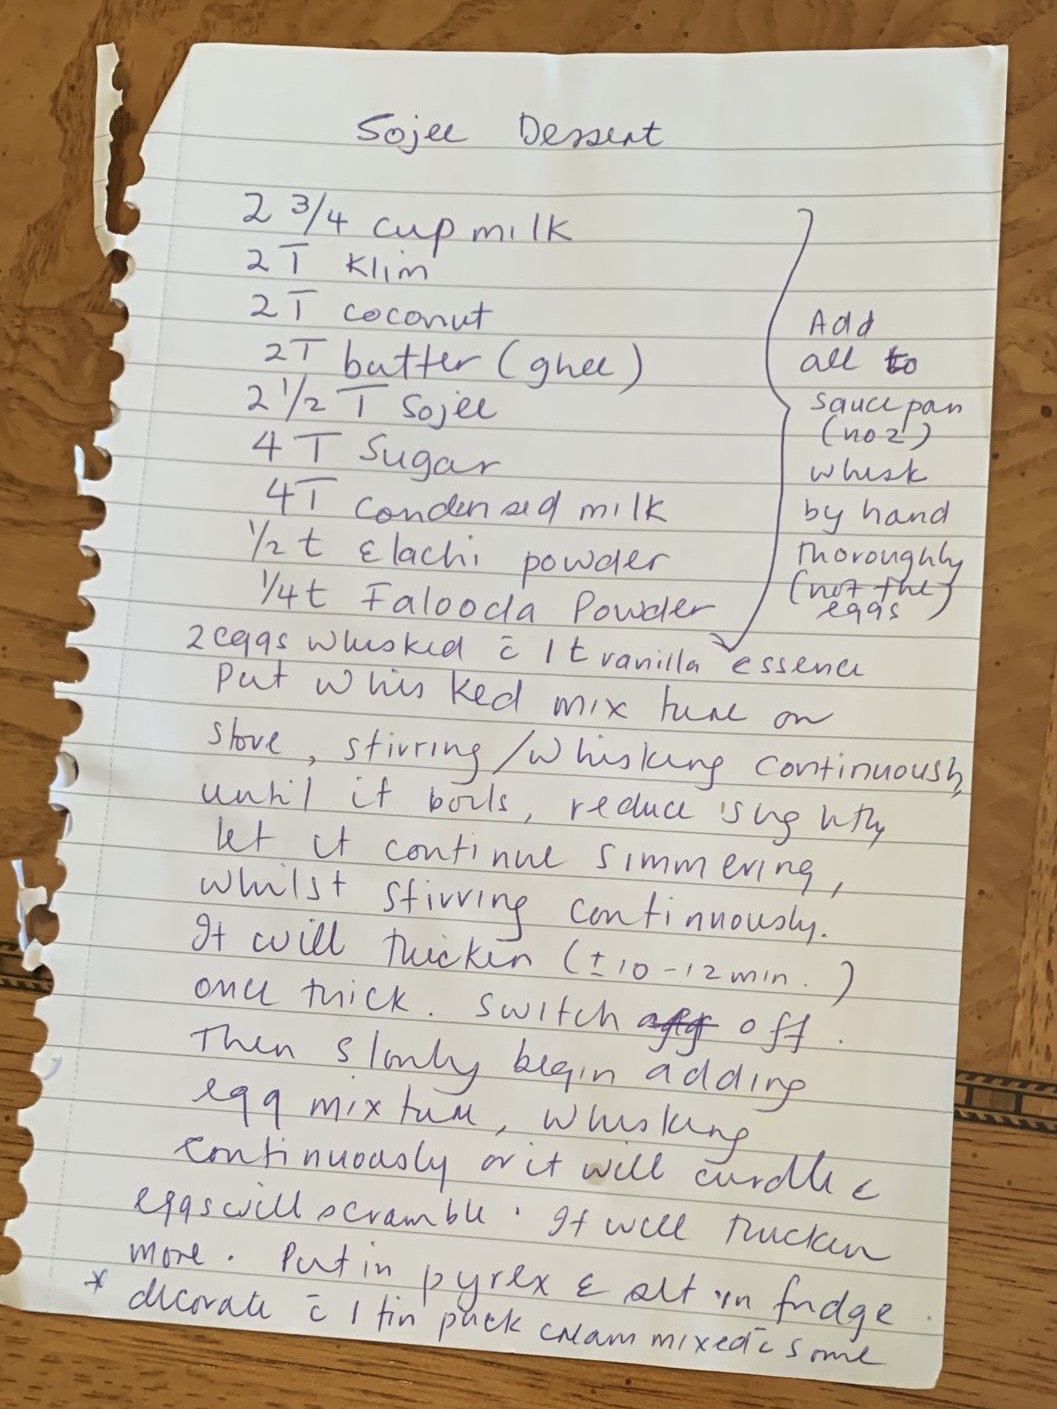 Sojee Dessert
2 3/4 cup milk
2 T Klim
2 T coconut
2T butter (ghee)
2 1/2 T Sojee
4 T Sugar
4T Condensed milk
1/2 t Elachi powder
1/4 t Falooda Powder
Add
all to
saucepan
(no 2)
whisk
by hand
thoroughly
(not the
eggs)
2 eggs whisked c̄ 1 t vanilla essence
Put whisked mixture on
stove, stirring/whisking continuously,
until it boils, reduce slightly
let it continue simmering,
whilst stirring continuously.
It will thicken (± 10 - 12 min.)
once thick. Switch off.
Then slowly begin adding
egg mixture, whisking
continuously or it will curdle c
eggs will scramble. It will thicken
more. Put in pyrex & set in fridge.
* decorate c̄ 1 tin cream mixed c̄ some